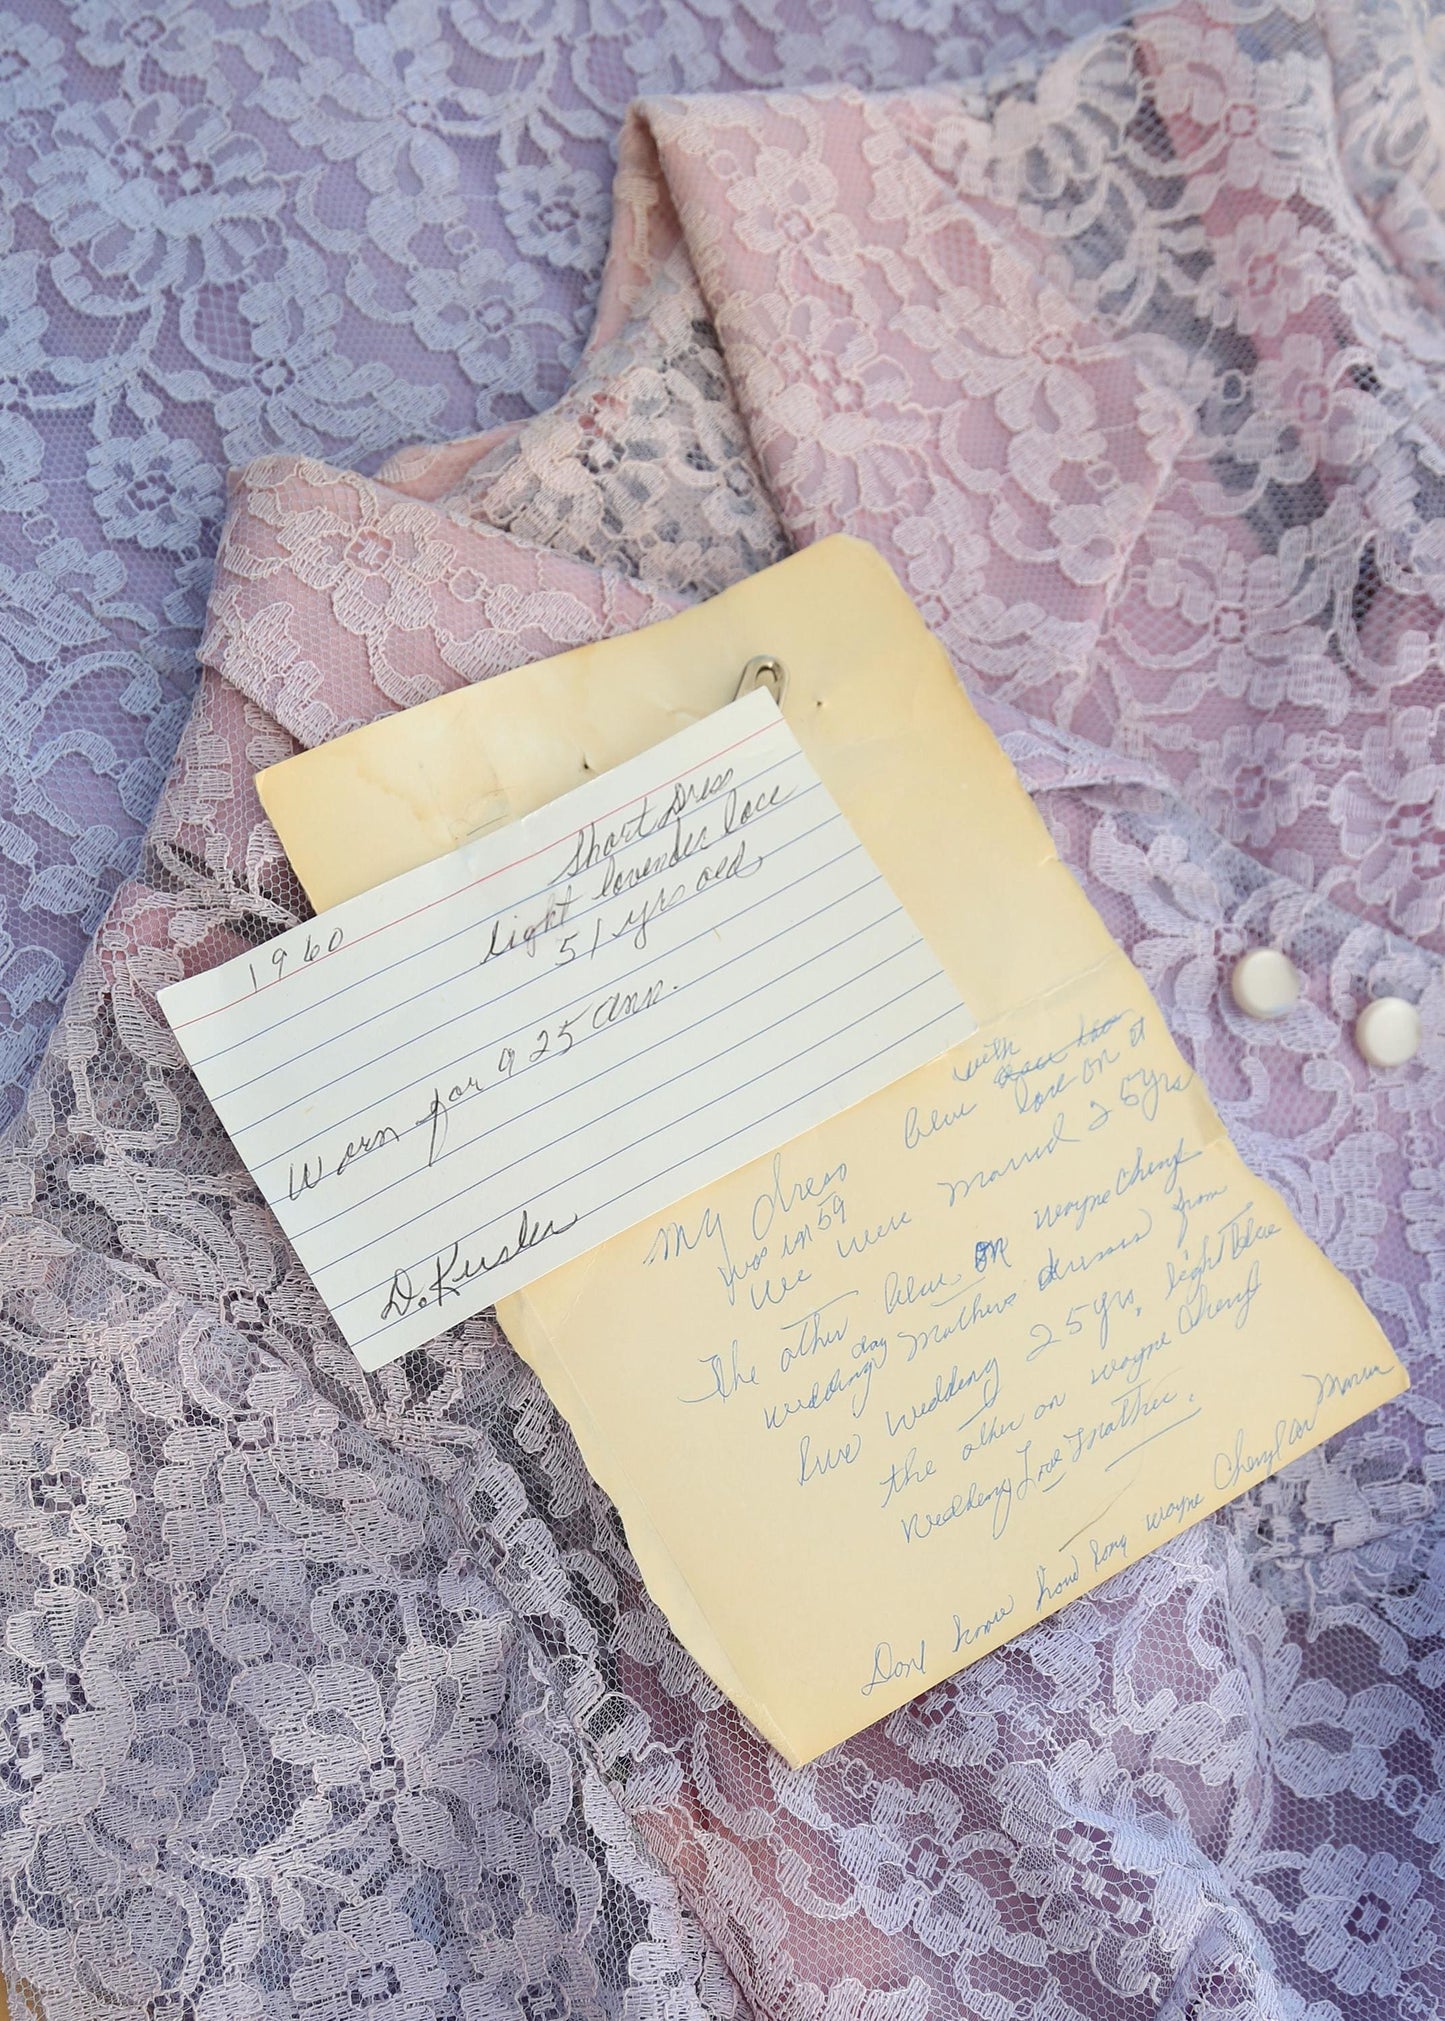 Short Dress
light lavender lace
1960 51 yrs old
Worn for a 25 Ann.
D. Keesler
My dress blue with
lace on it
was in 59
we were married 25 yrs
The other blue on Wayne Cheryl
wedding day Mothers dresses from
wedding 25 yrs, light blue
the other on Wayne Cheryl
wedding Love Mother.
Dont know how long Wayne Cheryl or